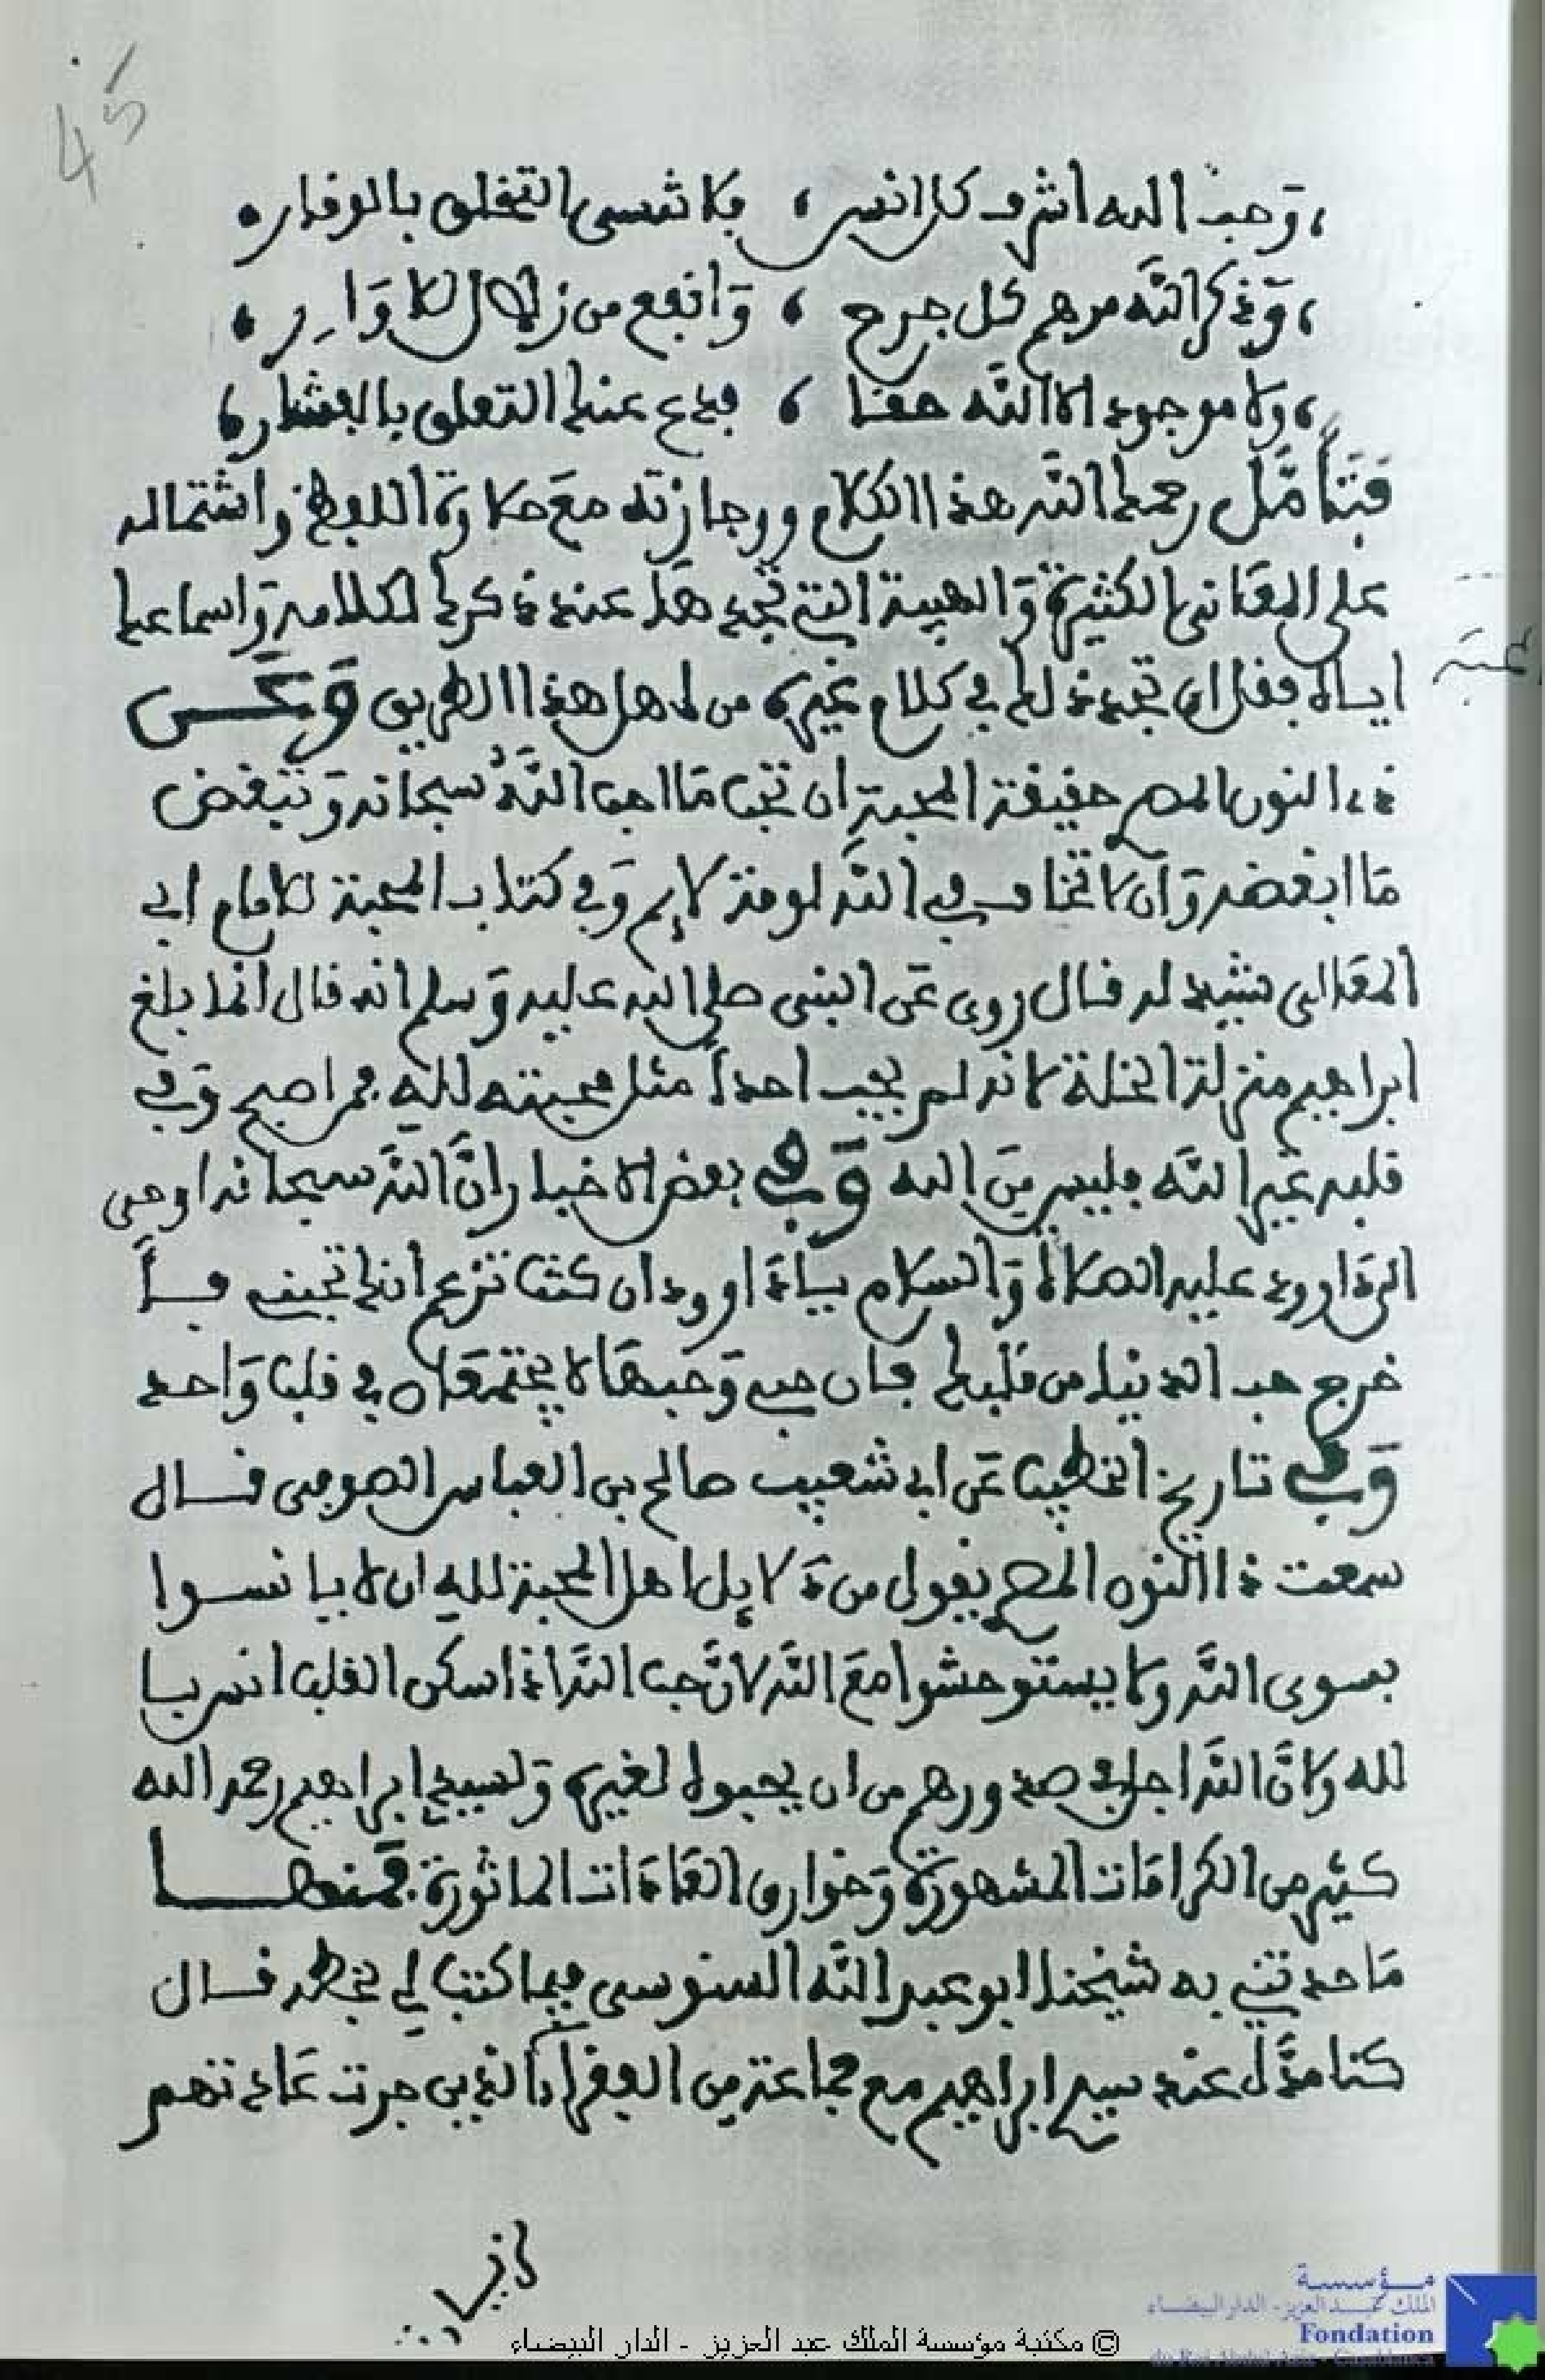 45
، وَحب الله اشرف كل انس ، فلا تنسى التخلق بالوقار ،
، وَذكر الله مرهم كل جرح ، وَانفع من زلال للاوَار ،
، ولا موجود الا الله حقا ، فدع عنك التعلق بالفشار ،
فتأمَّل رحمك الله هذا الكلام ووجازته معَ حلاوة اللفظ واشتماله
على المعَانى الكثيرة وَالهيبة التي تجدها عند ذكرك لكلامه وَاسماعك
اياه فقل ان تجد ذلك في كلام غيره من اهل هذا الطريق وَعَـن
ذى النون المصر حقيقة المحبة ان تحب مَا احب اللَّهُ سبحانه وَتبغض
مَا ابغضه وَان لا تخاف في الله لومة لايم وَفي كتاب المحبة للامام ابي
المعَالى شيدله قـال روى عَن النبى صلى الله عليه وَسلم انه قال انما بلغ
ابراهيم منزلة الخلة لانه لم يحب احداً مثل محبته لله فمن اصبح وَفي
قلبه غيَر الله فليس منَ الله وَفي بعض الاخبار انَّ اللهَ سبحانه اوحى
الى دَاوود عليه الصلاة وَالسلام يـادَاوود ان كنت تزعم انك تحبني فـأ
خرج حب الدنيا من قلبك فـان حبي وَحبهَا لا يجتمعَان في قلب وَاحد
وَفي تاريخ الخطيب عَن ابي شعيب صالح بن العباس الصوفى قـال
سمعت ذا النون المصر يقول من دَلايل اهل المحبة لله ان لا يـانسـوا
بسوى الله ولا يستوحشوا معَ الله لانَّ حب الله اذا سكن القلب انس بـا
لله ولانَّ الله اجل في صدورهم من ان يحبوا لغيره وَلسيدي ابراهيم رحمه الله
كثير من الكرامَات المشهورة وَخوارق العَادَات الماثورة فمَنهـا
مَا حدثني به شيخنا ابو عبد الله السنوسى فيما كتب لي بخطه قـال
كنا عند سيدي ابراهيم مع جماعة من الفقراء الذين جرت عَادتهم
© مكتبة مؤسسة الملك عبد العزيز - الدار البيضاء
مـؤسـسـة
الملك عبد العزيز - الدار البيضاء
Fondation
du Roi Abdul-Aziz - Casablanca